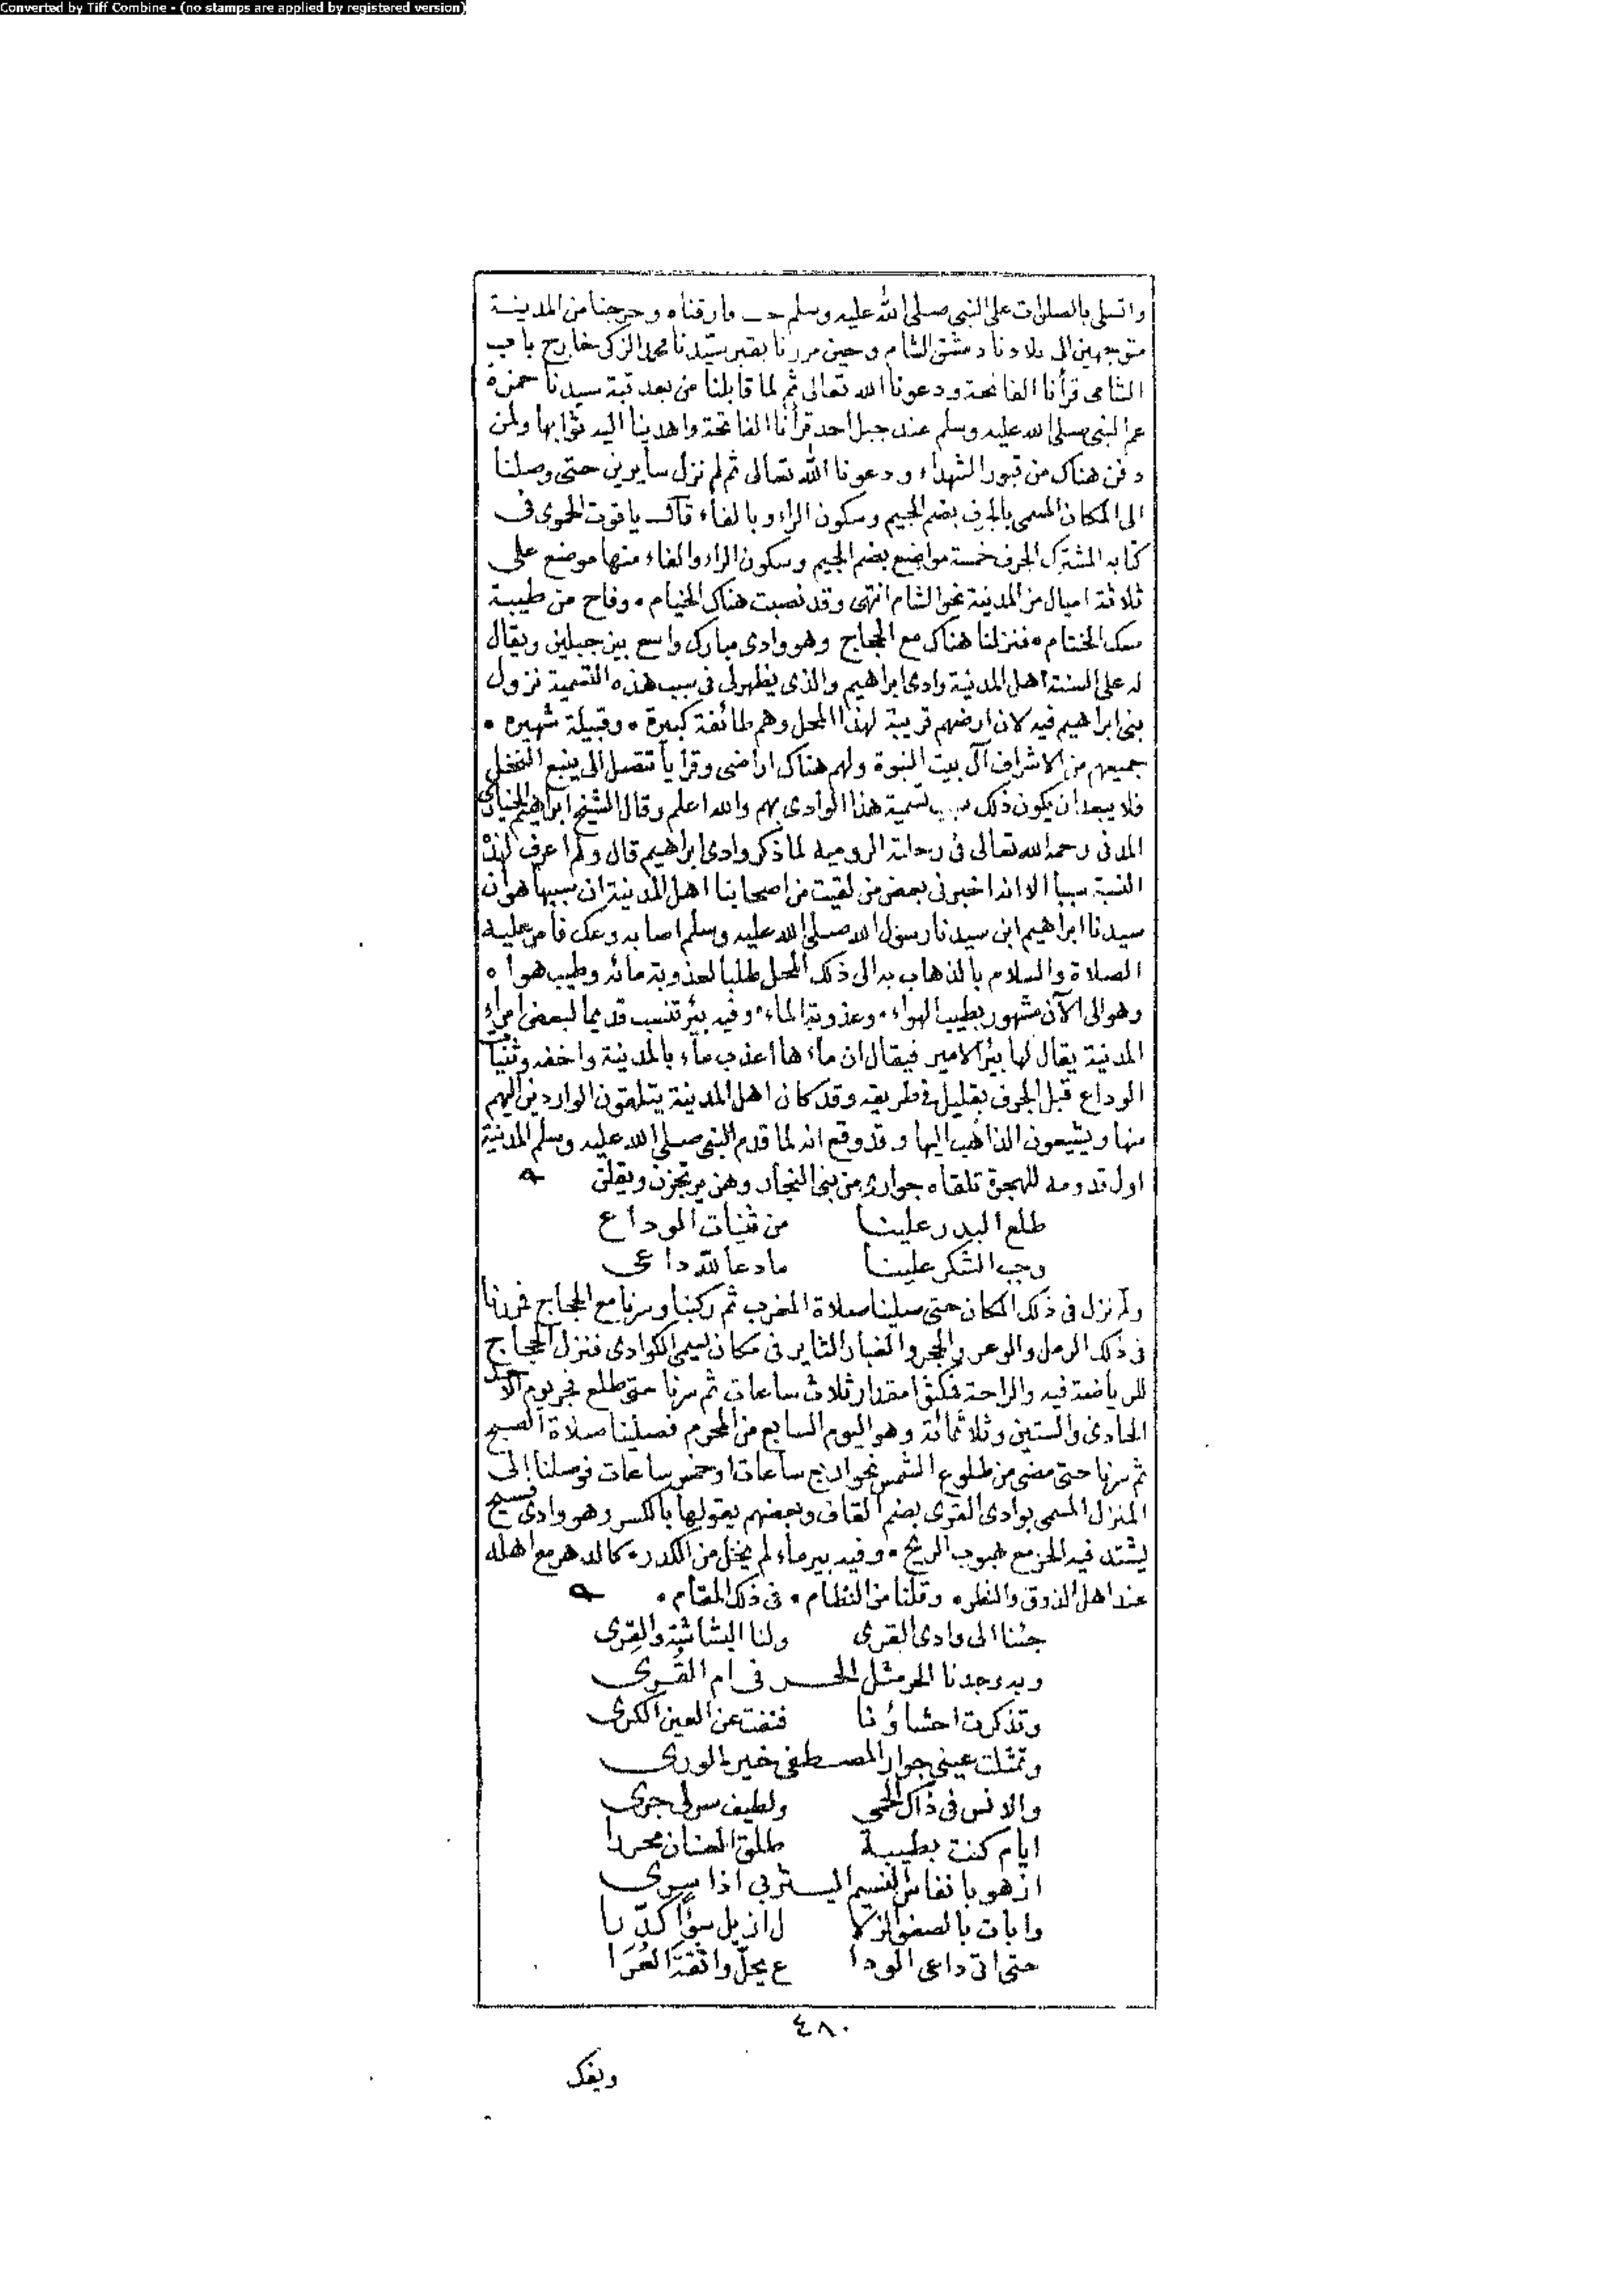 Converted by Tiff Combine - (no stamps are applied by registered version)
واتسلى بالصلوات على النبى صلى الله عليه وسلم وفارقناه وخرجنا من المدينة
متوجهين الى بلادنا دمشق الشام وحين مررنا بقبر سيدنا محمد الزكى خارج باب
الشامى قرأنا الفاتحة ودعونا الله تعالى ثم لما قابلنا من بعد قبة سيدنا حمزة
عم النبى صلى الله عليه وسلم عند جبل احد قرأنا الفاتحة واهدينا اليه ثوابها ولمن
دفن هناك من قبور الشهداء ودعونا الله تعالى ثم لم نزل سايرين حتى وصلنا
الى المكان المسمى بالجرف بضم الجيم وسكون الراء وبالفاء قال ياقوت الحموى فى
كتابه المشترك الجرف خمسة مواضع بضم الجيم وسكون الراء والفاء منها موضع على
ثلاثة اميال من المدينة نحو الشام انتهى وقد نصبت هناك الخيام • وفاح من طيبة
مسك الختام • فنزلنا هناك مع الحجاج وهو وادى مبارك واسع بين جبلين ويقال
له على السنة اهل المدينة وادى ابراهيم والذى يظهر لى فى سبب هذه التسمية نزول
بنى ابراهيم فيه لان ارضهم قريبة لهذا المحل وهم طائفة كبيرة • وقبيلة شهيره •
جميعهم من الاشراف آل بيت النبوة ولهم هناك اراضى وقرايا تتصل الى ينبع النخل
فلا يبعد ان يكون ذلك سبب تسمية هذا الوادى بهم والله اعلم وقال الشيخ ابراهيم الخيارى
المدنى رحمه الله تعالى فى رحلته الروميه لما ذكر وادى ابراهيم قال ولم اعرف لهذه
النسبة سببا الا انه اخبرنى بعض من لقيت من اصحابنا اهل المدينة ان سببها هو ان
سيدنا ابراهيم ابن سيدنا رسول الله صلى الله عليه وسلم اصابه وعك فامر عليه
الصلاة والسلام بالذهاب به الى ذلك المحل طلبا لعذوبة مائه وطيب هواه
وهو الى الآن مشهور بطيب الهواء • وعذوبة الماء • وفيه بئر تنسب قديما لبعض امراء
المدينة يقال لها بئر الامير فيقال ان ماءها اعذب ماء بالمدينة واخفه وثنيات
الوداع قبل الجرف بقليل فى طريقه وقد كان اهل المدينة يتلقون الواردين اليهم
منها ويشيعون الذاهب اليها وقد وقع انه لما قدم النبى صلى الله عليه وسلم المدينة
اول قدومه للهجرة تلقاه جوارى من بنى النجار وهن يرتجزن ويقلن
طلع البدر علينا من ثنيات الوداع
وجب الشكر علينا ما دعا لله داعى
ولم نزل فى ذلك المكان حتى صلينا صلاة المغرب ثم ركبنا وسرنا مع الحجاج فمررنا
فى ذلك الرمل والوعر والحجر والغبار الثاير فى مكان يسمى الكوادى فنزل الحجاج
للرياضة فيه والراحة فمكثوا مقدار ثلاث ساعات ثم سرنا حتى طلع فجر يوم الاحد
الحادى والستين وثلاثمائة وهو اليوم السابع من المحرم فصلينا صلاة الصبح
ثم سرنا حتى مضى من طلوع الشمس نحو اربع ساعات او خمس ساعات فوصلنا إلى
المنزل المسمى بوادى القرى بضم القاف وبعضهم يقولها بالكسر وهو وادى فسيح
يشتد فيه الحر مع هبوب الريح • وفيه بير ماء لم يخل من الكدر • كالدهر مع اهله
عند اهل الذوق والنظر • وقلنا من النظام • فى ذلك المقام •
جئنا الى وادى القرى ولنا البشاشة والقِرى
وبه وجدنا الحر مثل الحر فى ام القُرى
وتذكرت احشاؤنا فنفت عن العين الكرى
وتمثلت عينى جوار المصطفى خير الورى
والانس فى ذاك الحمى ولطيف سولى جرى
ايام كنت بطيبة طلق العنان محررا
ازهو بانفاس النسيم اليثربى اذا سرى
وابات بالصفو الزلا ل ازيل سؤا كدّرا
حتى اتى داعى الودا ع يحلّ واثقة العُرَا
٤٨٠
ويفك